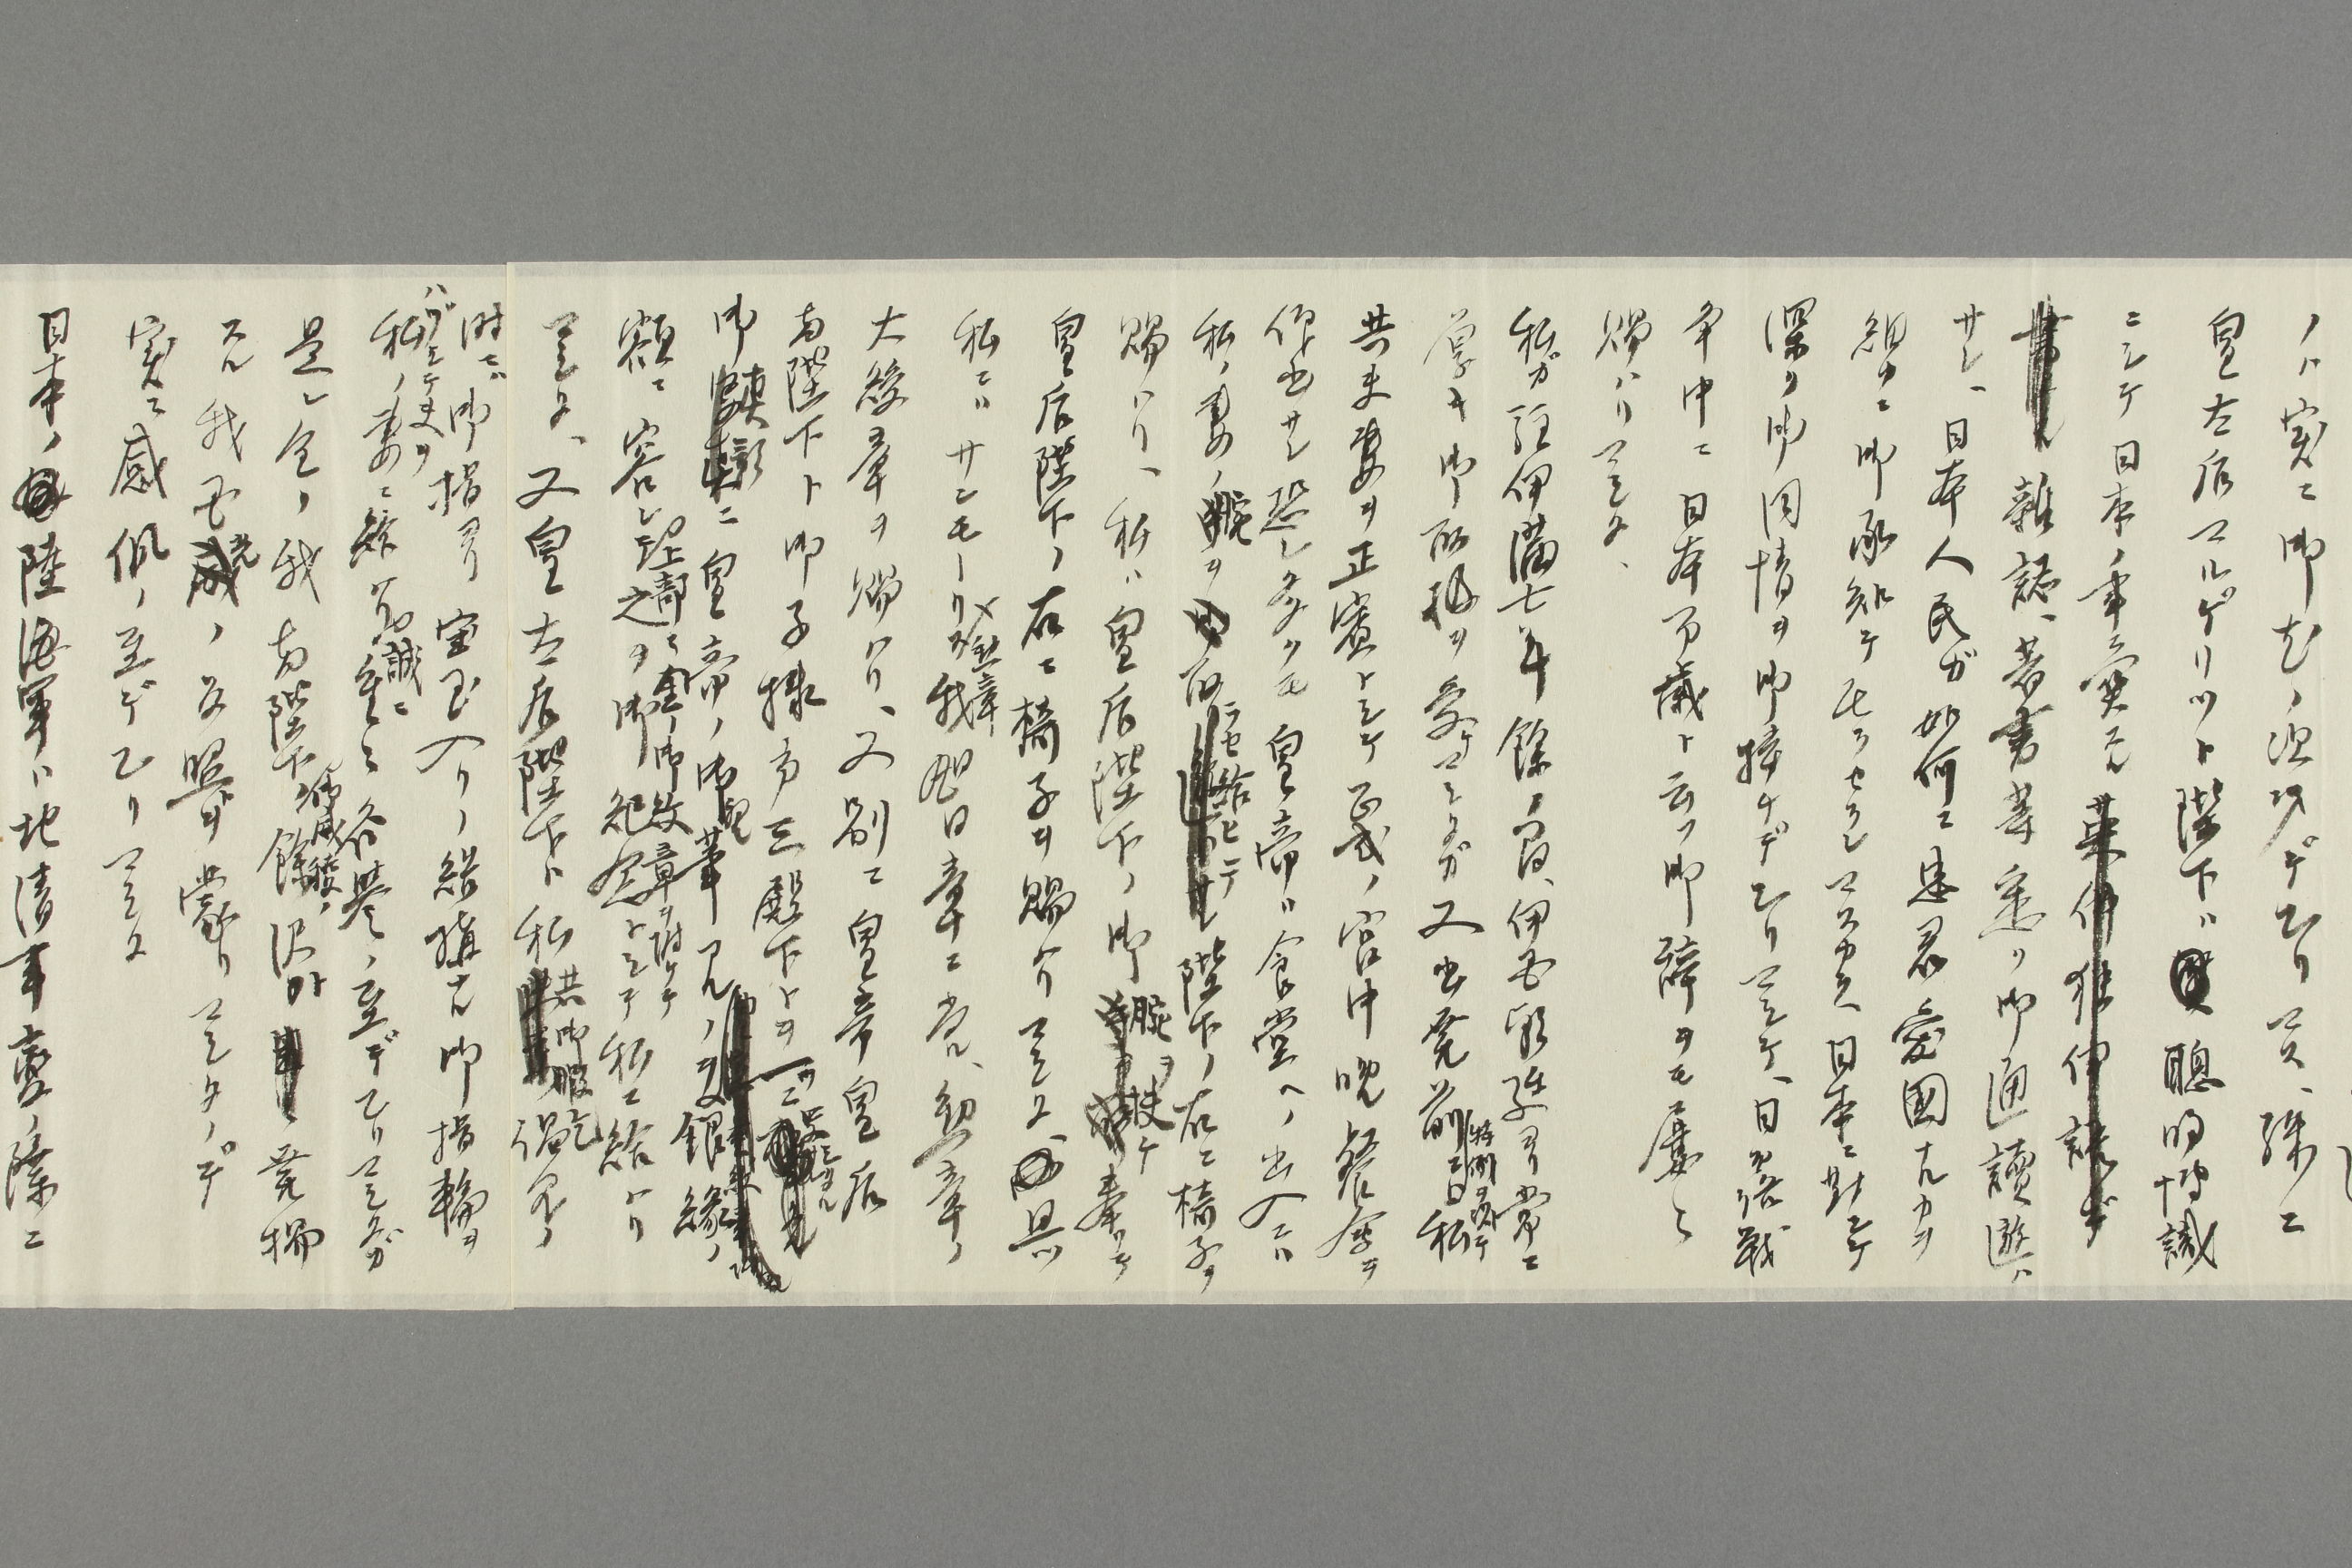 ノハ実ニ御尤ノ次第デアリマス、殊ニ
皇太后マルゲリット陛下ハ聰明博識
ニシテ日本ノ事ニ関スル英佛獨伊語ギ
雑誌、著書等悉ク御通讀遊ハ
サレ、日本人民ガ如何ニ忠君愛國ナルカヲ
細カニ御承知ニテ居ラセラレマスカラ、日本ニ對シテ
深ク御同情ヲ御捧ケデアリマシテ、日露戦
争中ニ日本万歳ト云フ御辞ヲモ屡々
賜ハリマシタ、
私ガ駐伊満七年餘ノ間、伊国朝廷ヨリ常ニ
厚キ御取扱ヲ受ケマシタガ又出発前ニ特別ヲ以テ私
共夫妻ヲ正賓トシテ正式ノ宮中晩餐會ヲ
催出サレ恐レ多クモ皇帝ハ食堂ヘノ出入ニハ
私ノ妻ノ腕ヲ取ラセ給ヒテ陛下ノ右ニ椅子ヲ
賜ハリ、私ハ皇后陛下ノ御腕ヲ扶ケ奉リテ
皇后陛下ノ右ニ椅子ヲ賜ハリマシタ、且ツ
私ニハサンモーリス勲章我旭日章ニ当ル勲章ノ
大綬章ヲ賜ハリ、又別ニ皇帝皇后
両陛下ト御子様方三殿下トヲ
御真影ニ皇帝ノ御親筆アル銀縁ノ
額ニ容レ上部ニ金ノ御紋章ヲ附ケテ之ヲ御紀念トシテ私ニ給ハリ
マシタ、又皇太后陛下ハ私共御暇乞謁見ノ
時ニハ御指ヨリ宝玉入リノ結構ナル御指輪ヲ
ハヅシテ夫ヲ私ノ妻ニ賜ハリ誠ニ重々光榮ノ至デアリマシタガ
是レ全ク我両陛下ノ御威稜ノ餘沢カ発揚
スル我国光ノ反照ヲ蒙リマシタノデ
実ニ感佩ノ至デアリマシタ
日本ノ陸海軍ハ北清事変ノ際ニ